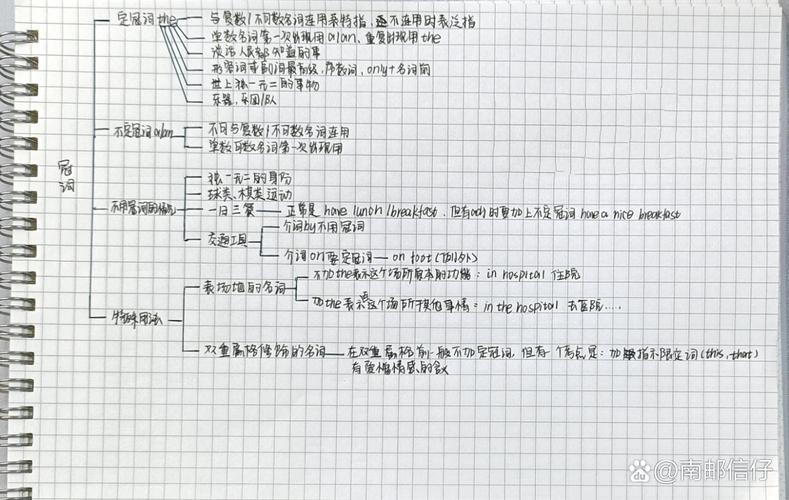 定冠词 the
与复数/不可数名词连用表特指, 不连用时表泛指
单数名词第一次出现用a/an, 重复出现用the
谈话人都知道的事
形容词或副词最高级, 序数词, only+名词前
世上独一无二的事物
乐器, 乐团/队
不定冠词 a/an
不可与复数/不可数名词连用
单数可数名词第一次出现用
冠词
不用冠词的情况
独一无二的身份
球类、棋类运动
一日三餐 — 正常是 have lunch/breakfast, 但有adj时要加上不定冠词 have a nice breakfast
交通工具
介词by不用冠词
介词on要定冠词 — on foot(例外)
特殊用法
表场地的名词
不加the表示这个场所原本的功能: in hospital 住院
加the表示这个场所其他事情: in the hospital 去医院.....
双重属格修饰的名词 — 在双重属格前一般不加定冠词, 但有一个考点是: 加指示限定词(this, that)
有爱憎情感的含义
Bai 百度 @南邮信仔